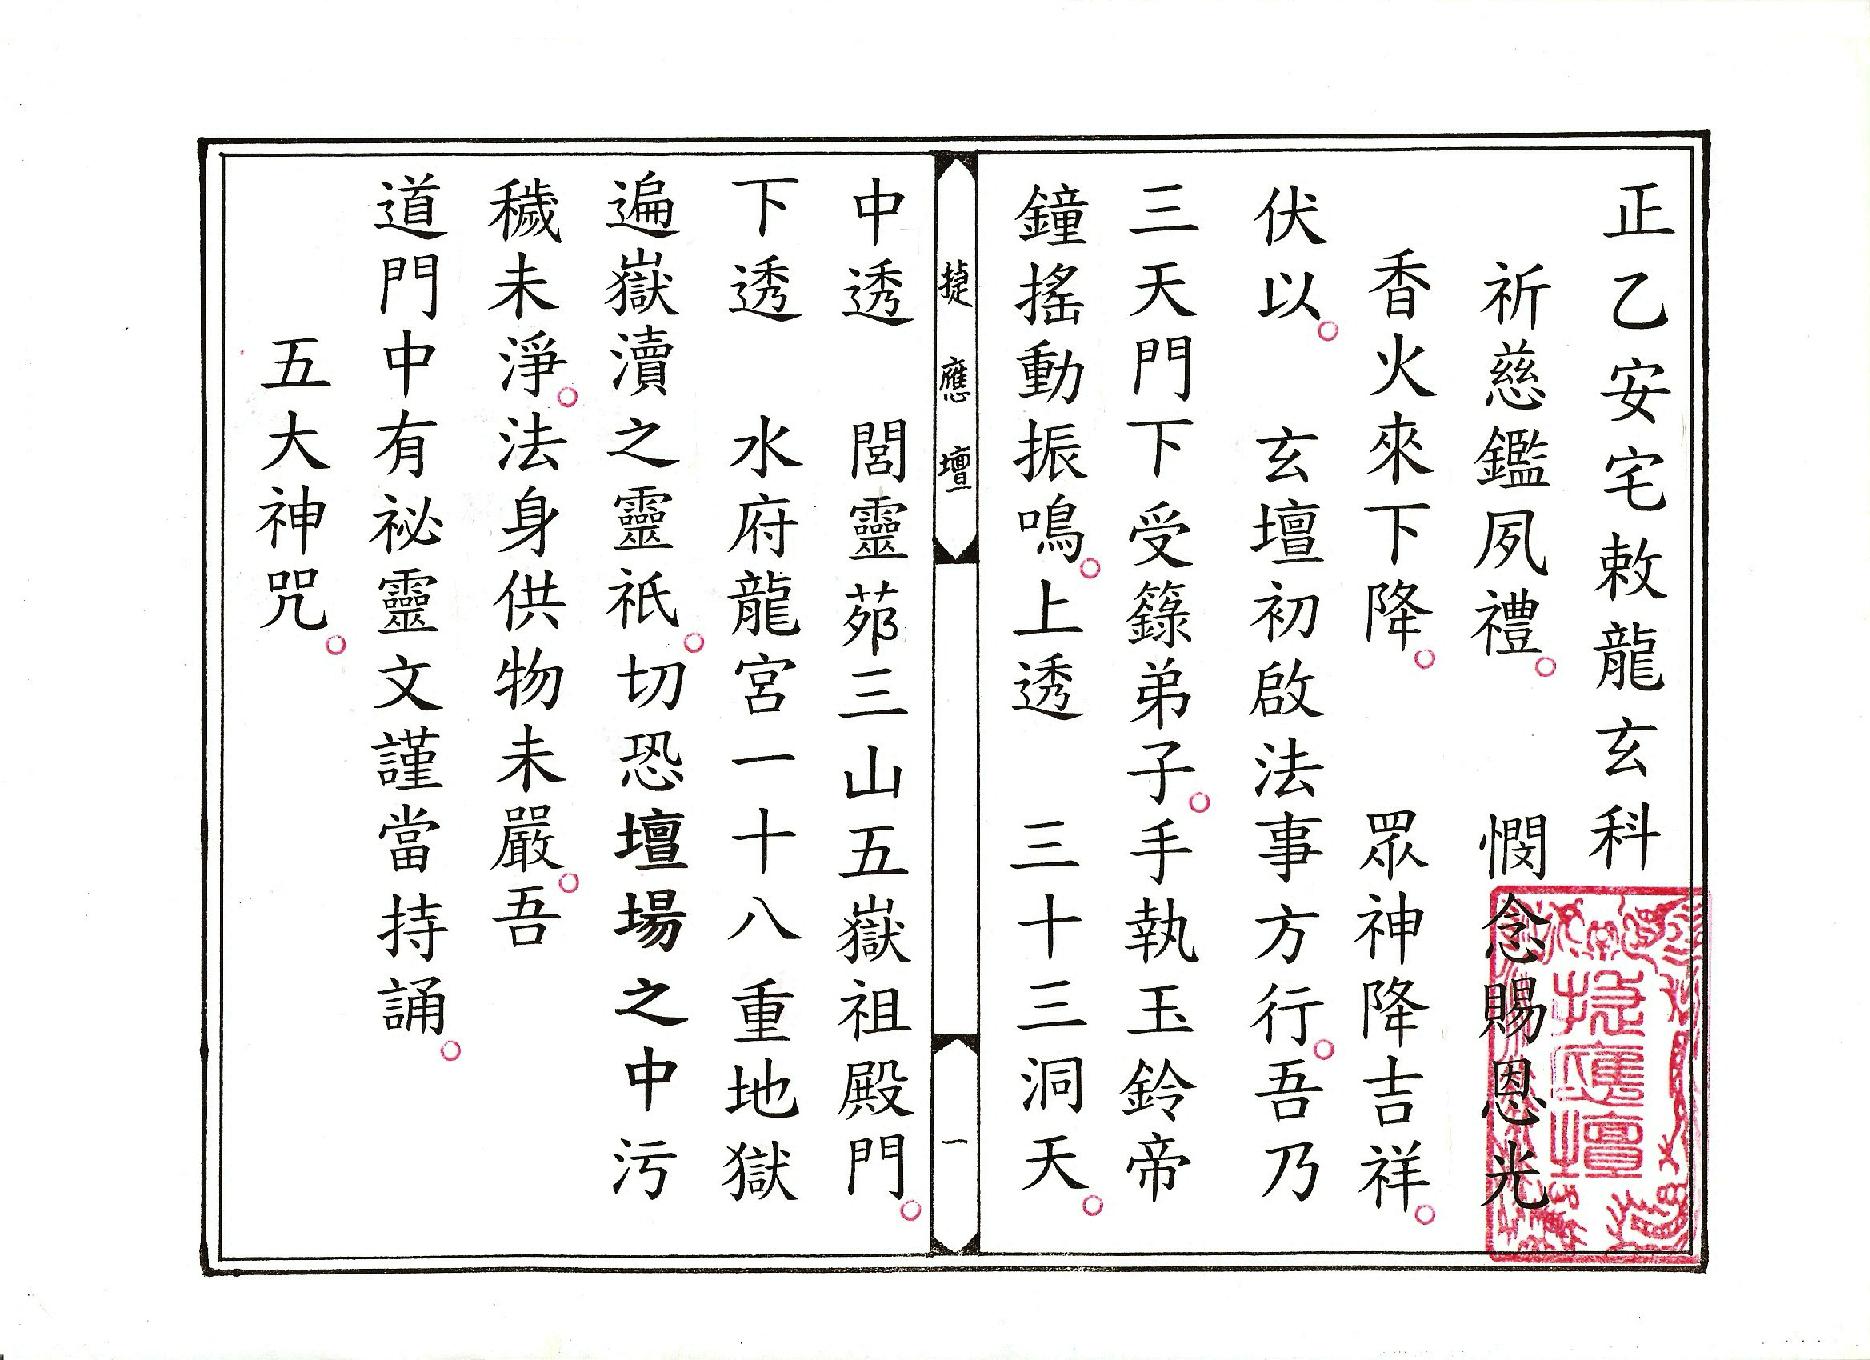 正乙安宅敕龍玄科
祈慈鑑夙禮。　憫念賜恩光
香火來下降。　眾神降吉祥。
伏以。　玄壇初啟法事方行。吾乃
三天門下受籙弟子。手執玉鈴帝
鐘搖動振鳴。上透　三十三洞天。
捷應壇
一
中透　閭靈苑三山五嶽祖殿門。
下透　水府龍宮一十八重地獄
遍嶽瀆之靈祇。切恐壇場之中污
穢未淨。法身供物未嚴。吾
道門中有祕靈文謹當持誦。
五大神咒。
捷應壇